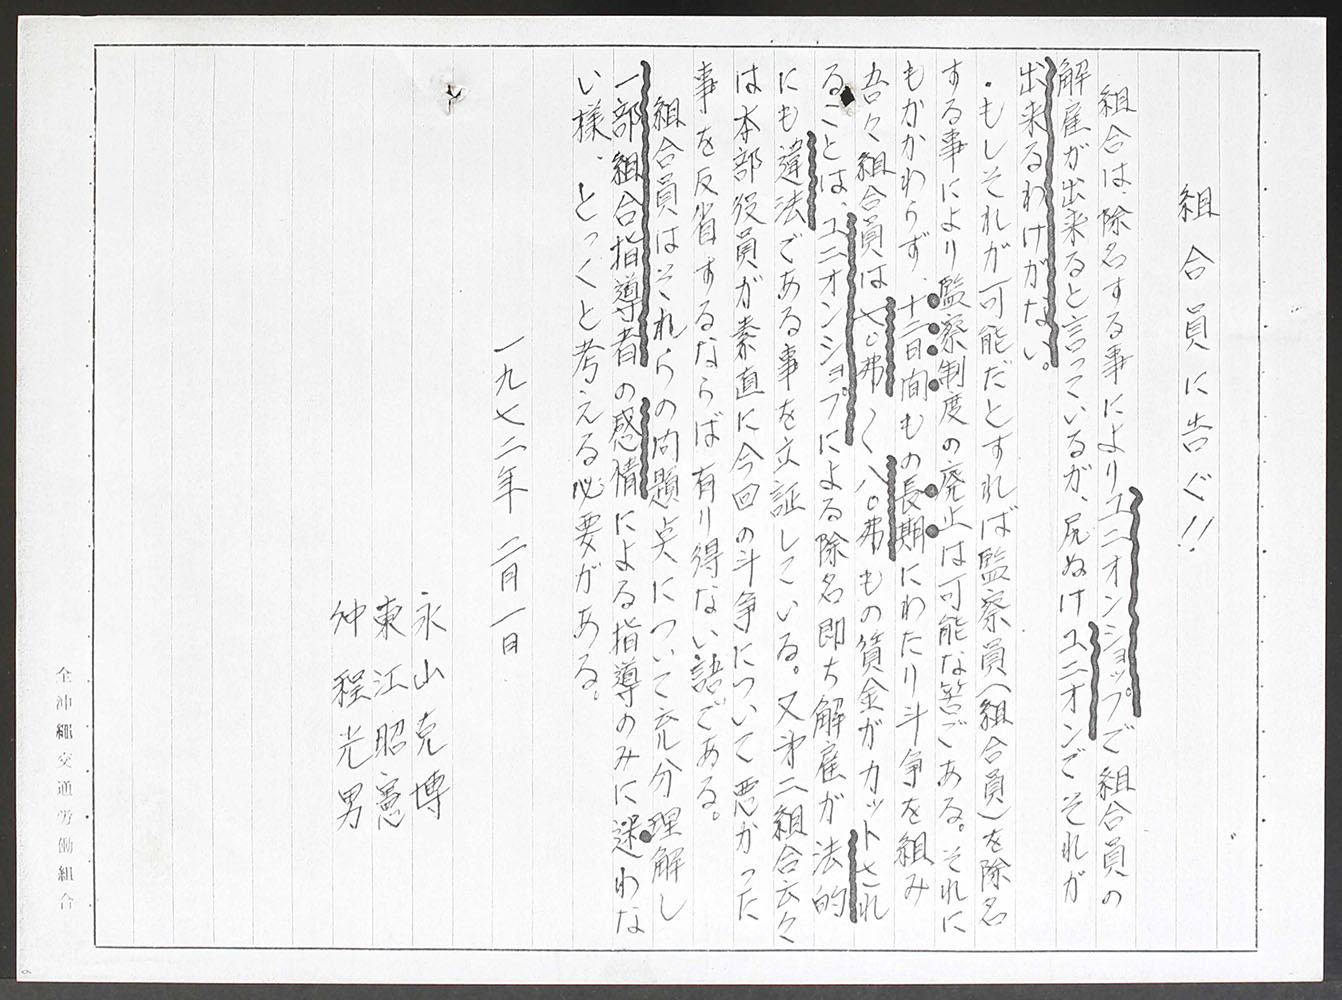 組合員に告ぐ!!
組合は、除名する事によりユニオンショップで組合員の
解雇が出来ると言っているが、尻ぬけユニオンでそれが
出来るわけがない。
・もしそれが可能だとすれば監察員(組合員)を除名
する事により監察制度の廃止は可能な筈である。それに
もかかわらず、十二日間もの長期にわたり斗争を組み
吾々組合員は七〇弗〜八〇弗もの賃金がカットされ
ることは、ユニオンショプによる除名即ち解雇が法的
にも違法である事を立証している。又第二組合云々
は本部役員が素直に今回の斗争について悪かった
事を反省するならば有り得ない語である。
組合員はそれらの問題点について充分理解し
一部組合指導者の感情による指導のみに迷わな
い様、とっくと考える必要がある。
一九七二年 二月一日
永山克博
東江昭憲
仲程光男
全沖縄交通労働組合